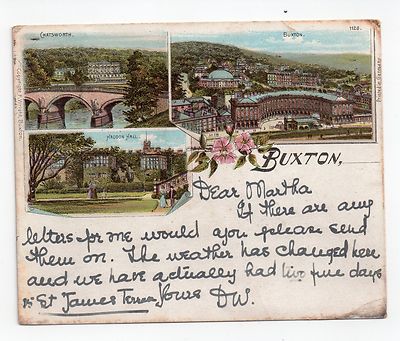 CHATSWORTH.
BUXTON.
1128.
HADDON HALL.
BUXTON,
Dear Martha
If there are any
letters for me would you please send
them on. The weather has changed here
and we have actually had two fine days
15 St James Terrace Yours DW.